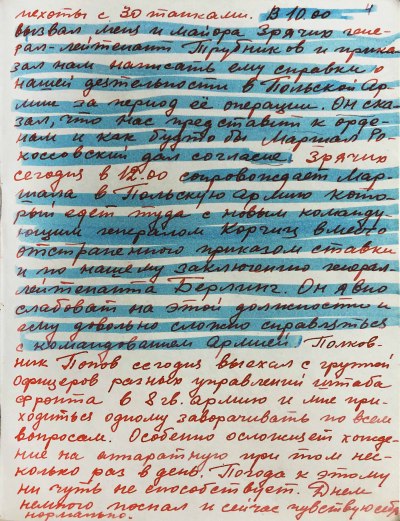 пехоты с 30 танками. В 10.00 ч
вызвал меня и майора Зрячих гене-
рал-лейтенант Трубников и прика-
зал нам написать ему справки о
нашей деятельности в Польской Ар-
мии за период её операции. Он ска-
зал, что нас представит к орде-
нам и как будто бы Маршал Ро-
коссовский дал согласие. Зрячих
сегодня в 12.00 сопровождает Мар-
шала в Польскую Армию кото-
рый едет туда с новым команду-
ющим генералом Корчиц вместо
отстраненного приказом ставки
и по нашему заключению генерал-
лейтенанта Берлинг. Он явно
слабоват на этой должности и
ему довольно сложно справляться
с командованием Армией. Полков-
ник Попов сегодня выехал с группой
офицеров разных управлений штаба
фронта в 8 гв. армию и мне при-
ходиться одному заворачивать по всем
вопросам. Особенно осложняет хожде-
ние на аппаратную при том нес-
колько раз в день. Погода к этому
ни чуть не способствует. Днем
немного поспал и сейчас чувствую себя
нормально.